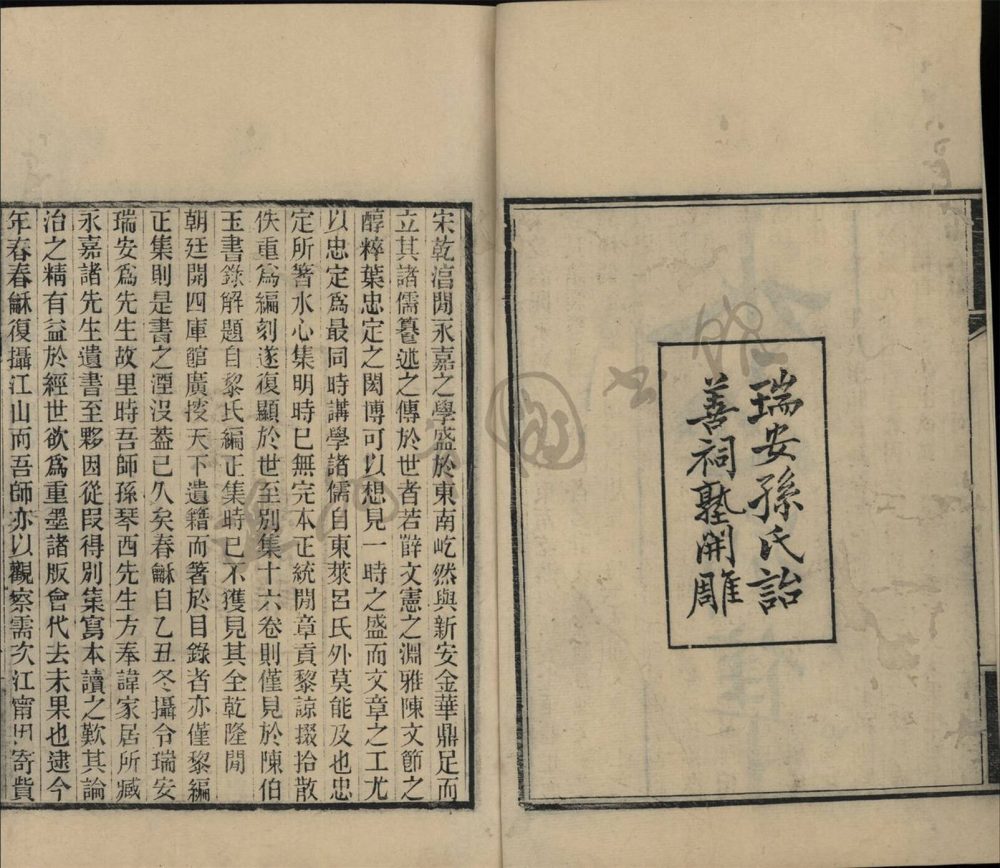 瑞安孫氏詒
善祠塾開雕
宋乾湻閒永嘉之學盛於東南屹然與新安金華鼎足而
立其諸儒纂述之傳於世者若薛文憲之淵雅陳文節之
醇粹葉忠定之閎博可以想見一時之盛而文章之工尤
以忠定爲最同時講學諸儒自東萊呂氏外莫能及也忠
定所箸水心集明時已無完本正統閒章貢黎諒掇拾散
佚重爲編刻遂復顯於世至別集十六卷則僅見於陳伯
玉書錄解題自黎氏編正集時已不獲見其全乾隆閒
朝廷開四庫館廣搜天下遺籍而箸於目錄者亦僅黎編
正集則是書之湮沒葢已久矣春龢自乙丑冬攝令瑞安
瑞安爲先生故里時吾師孫琴西先生方奉諱家居所臧
永嘉諸先生遺書至夥因從叚得別集寫本讀之歎其論
治之精有益於經世欲爲重墨諸版會代去未果也逮今
年春春龢復攝江山而吾師亦以觀察需次江甯因寄貲